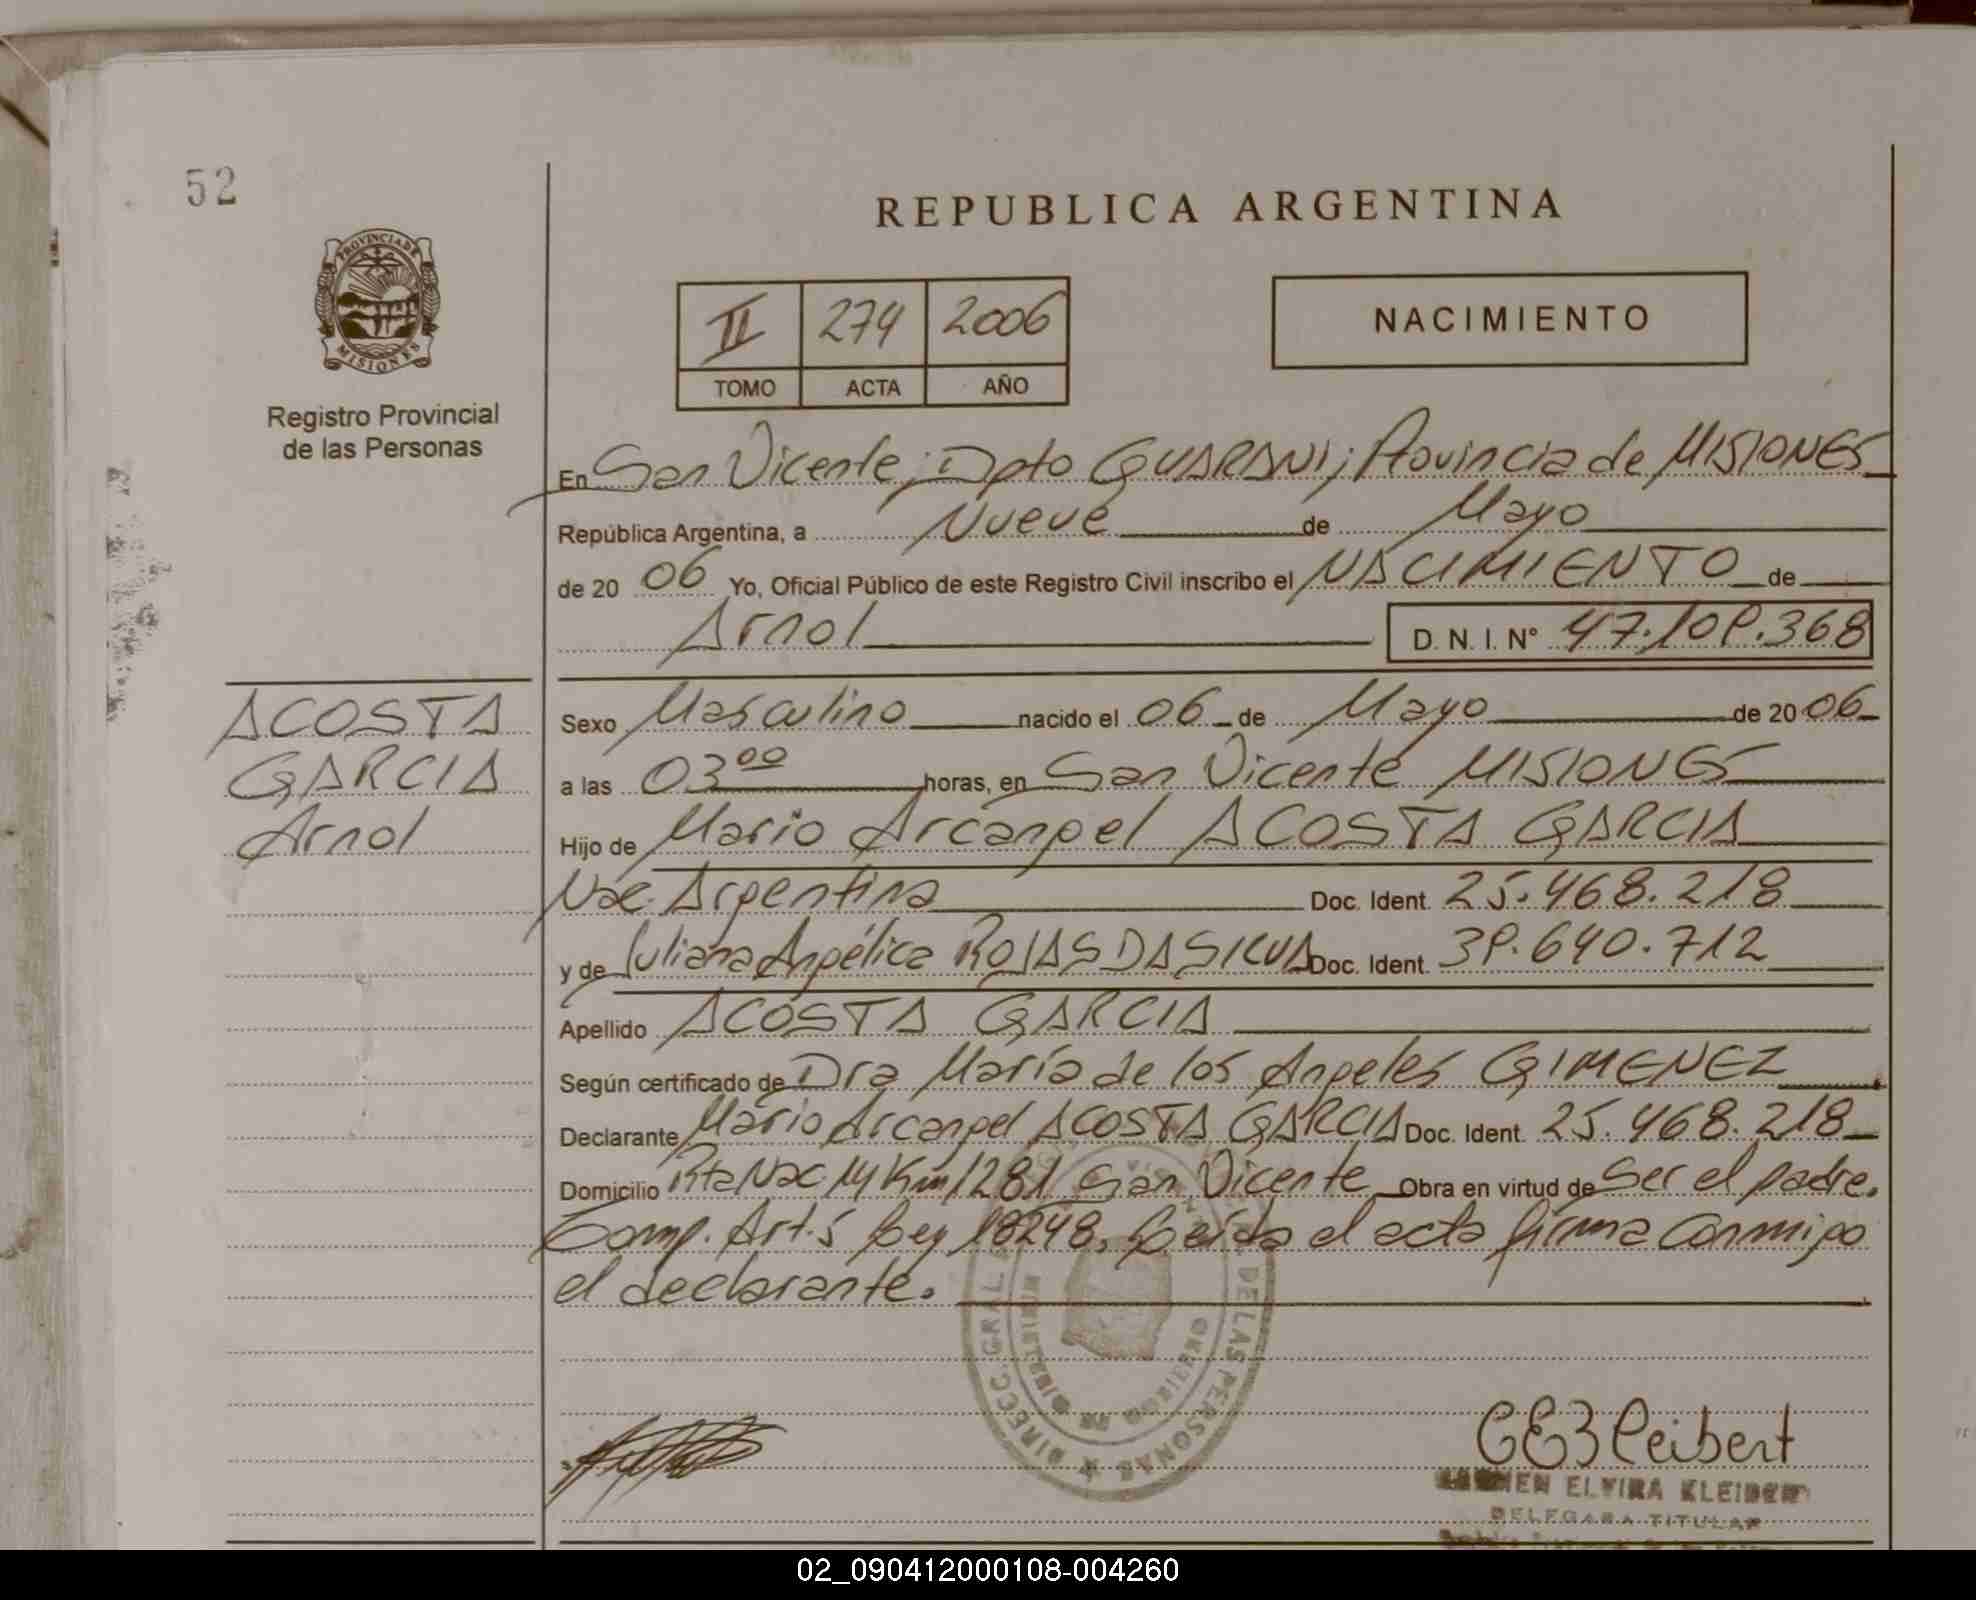 52
REPUBLICA ARGENTINA
PROVINCIA DE
MISIONES
Registro Provincial
de las Personas
II 274 2006
TOMO ACTA AÑO
NACIMIENTO
En San Vicente; Dpto GUARANI; Provincia de MISIONES
República Argentina, a Nueve de Mayo
de 20 06 Yo, Oficial Público de este Registro Civil inscribo el NACIMIENTO de
Arnol D. N. I. N° 47.109.368
ACOSTA
GARCIA
Arnol
Sexo Masculino nacido el 06 de Mayo de 20 06
a las 03⁰⁰ horas, en San Vicente MISIONES
Hijo de Mario Arcangel ACOSTA GARCIA
Nac. Argentina Doc. Ident. 25.468.218
y de Iuliana Angélica ROJAS DA SILVA Doc. Ident. 39.640.712
Apellido ACOSTA GARCIA
Según certificado de Dra María de los Angeles GIMENEZ
Declarante Mario Arcangel ACOSTA GARCIA Doc. Ident. 25.468.218
Domicilio Rta Nac 14 Km 1281 San Vicente Obra en virtud de Ser el padre.
Comp. Art. 5 Ley 18248. Leída el acta firma conmigo
el declarante.
DIRECC GRAL DE LAS PERSONAS
CEB Leibert
CARMEN ELVIRA KLEIBERT
DELEGADA TITULAR
02_090412000108-004260